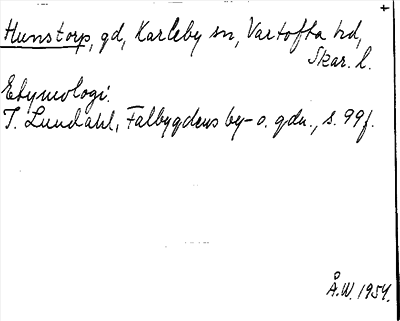 +
Hunstorp, gd, Karleby sn, Vartofta hd,
Skar. l.
Etymologi:
T. Lundahl, Falbygdens by- o. gdn., s. 99f.
Å.W. 1954.